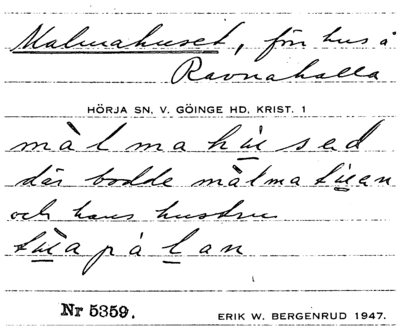 Malmahuset, förr hus å
Ravnahalla
HÖRJA SN, V. GÖINGE HD, KRIST. 1
màlmahùsed
där bodde màlma
och hans hustru
Nr 5359.
ERIK W. BERGENRUD 1947.